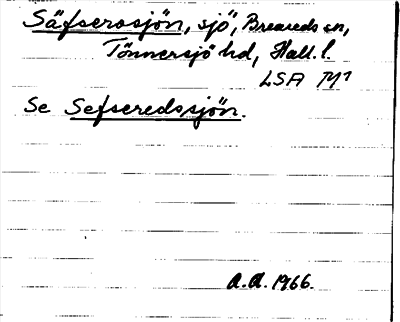 Säfserosjön, sjö, Breareds sn,
Tönnersjö hd, Hall. l.
LSA M1
Se Sefseredssjön.
A.A. 1966.